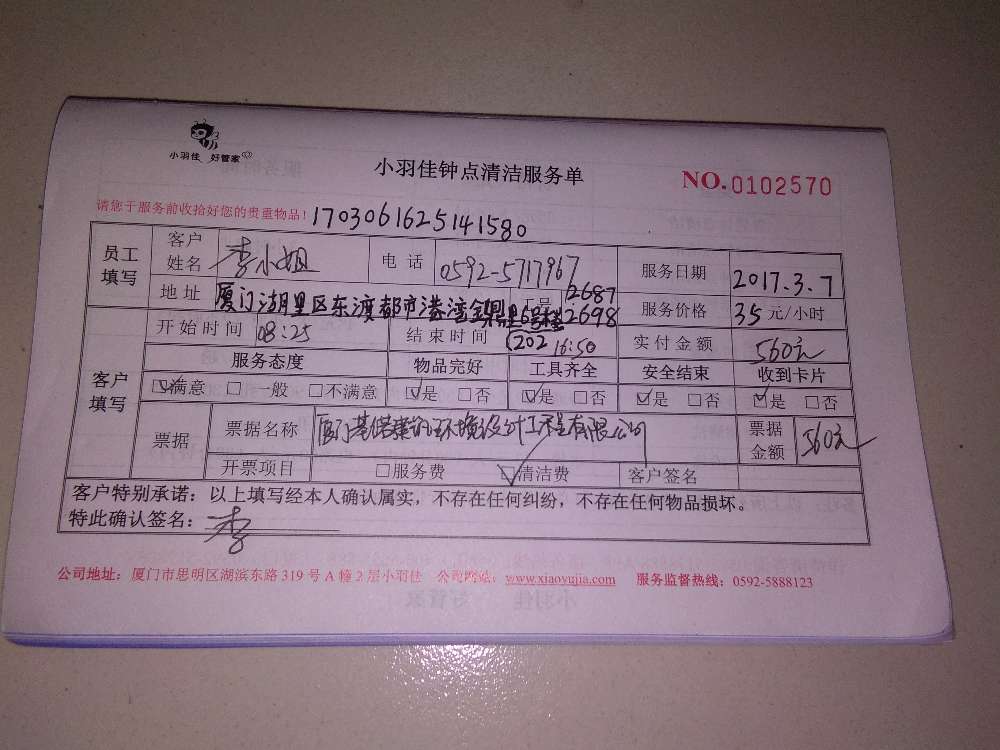 小羽佳 好管家
小羽佳钟点清洁服务单
NO.0102570
请您于服务前收拾好您的贵重物品！1703061625141580
员工填写 客户姓名 李小姐 电话 0592-5717967 服务日期 2017.3.7
地址 厦门湖里区东渡都市港湾金鼎里6号楼202 工号 2687 2698 服务价格 35元/小时
开始时间 08:25 结束时间 16:50 实付金额 560元
客户填写 服务态度 物品完好 工具齐全 安全结束 收到卡片
☑满意 □一般 □不满意 ☑是 □否 ☑是 □否 ☑是 □否 ☑是 □否
票据 票据名称 厦门 环境设计工程有限公司 票据金额 560元
开票项目 □服务费 ☑清洁费 客户签名
客户特别承诺：以上填写经本人确认属实，不存在任何纠纷，不存在任何物品损坏。
特此确认签名：李
公司地址：厦门市思明区湖滨东路319号A幢2层小羽佳 公司网站：www.xiaoyujia.com 服务监督热线：0592-5888123